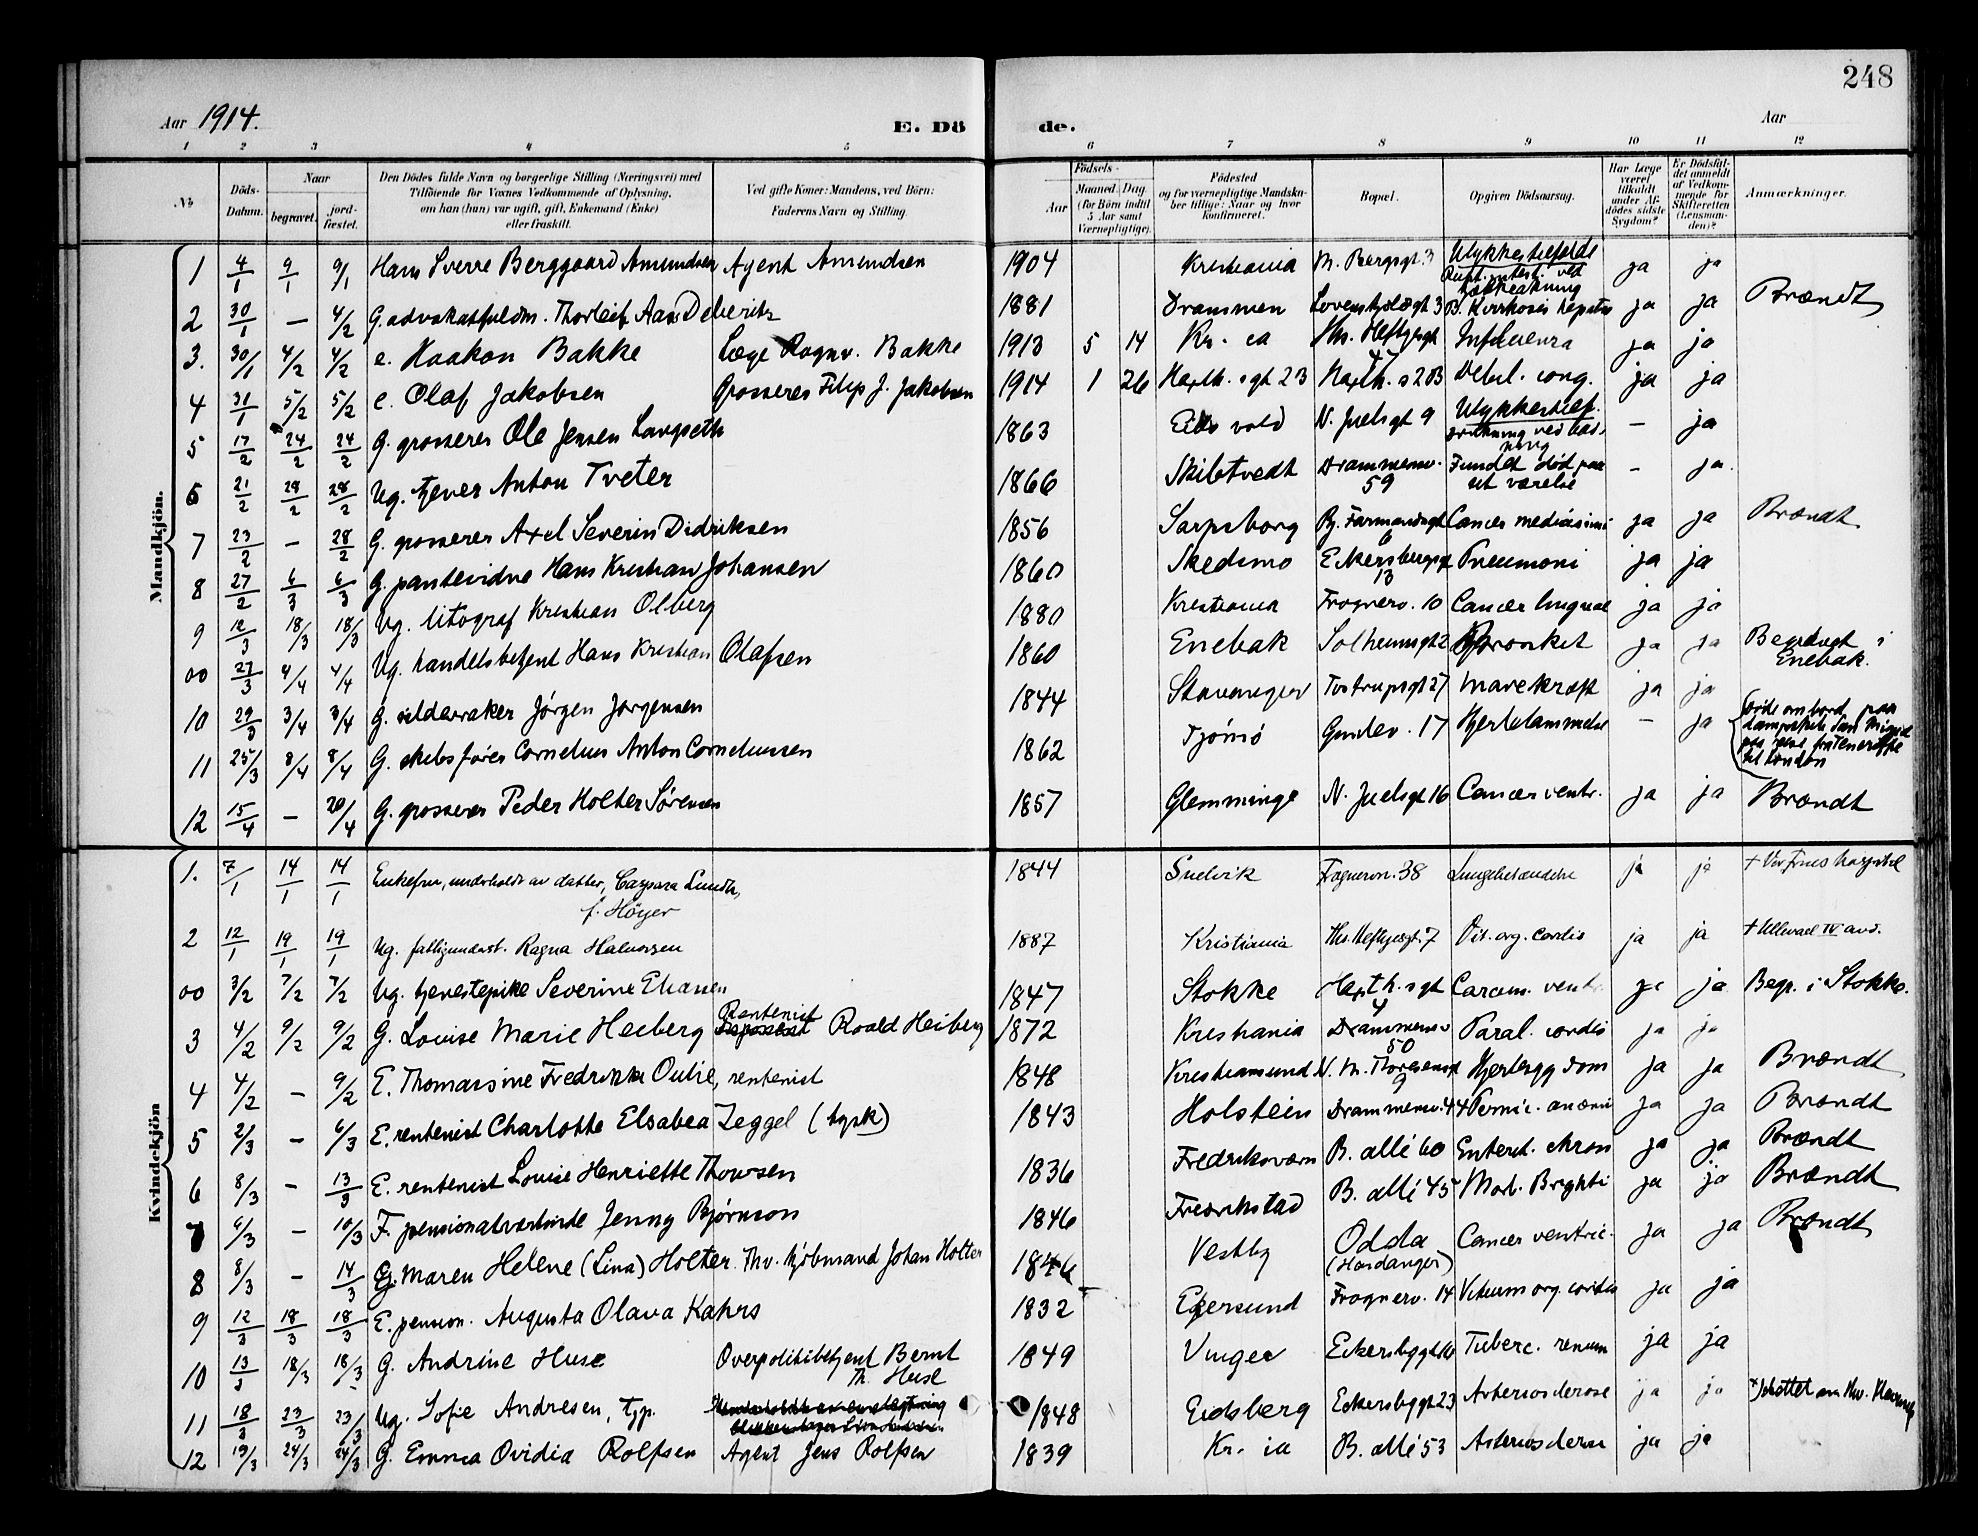 248
Aar 1914. E. Dö de. Aar
1 2 3 4 5 6 7 8 9 10 11 12
№ Döds-Datum. Naar begravet. jord-fæstet. Den Dödes fulde Navn og borgerlige Stilling (Næringsvei) med Tilföiende for Voxnes Vedkommende af Oplysning, om han (hun) var ugift, gift, Enkemand (Enke) eller fraskilt. Ved gifte Koner: Mandens, ved Börn: Faderens Navn og Stilling. Födsels- Aar Maaned Dag (for Börn indtil 5 Aar samt Værnepligtige). Födested og for værnepligtige Mandskaber tillige: Naar og hvor konfirmeret. Bopæl. Opgiven Dödsaarsag. Har Læge været tilkaldt under Afdödes sidste Sygdom? Er Dödsfaldet anmeldt af Vedkommende for Skifteretten (Lensmanden)? Anmærkninger.
Mandkjön.
1 4/1 9/1 9/1 Hans Sverre Berggaard Amundsen Agent Amundsen 1904 Kristiania M. Bergsgt. 3 Ulykkestilfælde ved ja ja
2 30/1 – 4/2 G. Thorleif Aas Deberitz 1881 Drammen Løvenskjoldsgt 3 B. Cirrhosis hepatis ja ja Brændt
3. 30/1 4/2 4/2 e. Haakon Bakke Læge Ragnv. Bakke 1913 5 14 Kr. ia Ths. Heftyesgt 47 Influenza ja ja
4 31/1 5/2 5/2 e. Olaf Jakobsen Grosserer Filip J. Jakobsen 1914 1 26 Haxth. sgt 23 Haxth. s 23 Debil. cong. ja ja
5 17/2 24/2 24/2 G. grosserer Ole Jensen Langseth 1863 Eidsvold N. Juelsgt 9 Ulykkestilf. drukning ved – ja
6 21/2 28/2 28/2 Ug. tjener Anton Tveter 1866 Skibtvedt Drammensv. 59 Fundet død paa sit værelse – ja.
7 23/2 – 28/2 G. grosserer Axel Severin Didriksen 1856 Sarpsborg Bj. Farmandsgt 6 Cancer mediastini ja ja Brændt
8 27/2 6/3 6/3 G. Hans Kristian Johansen 1860 Skedsmo Eckersbergsgt 13 Pneumoni ja ja
9 12/3 18/3 18/3 Ug. litograf Kristian Olberg 1880 Kristiania Frognerv. 10 Cancer linguae ja ja
00 27/3 4/4 4/4 Ug. handelsbetjent Hans Kristian Olafsen 1860 Enebak Solheimsgt 2 Bronkit ja ja Begravet i Enebak.
10 29/3 3/4 3/4 G. Jørgen Jørgensen 1844 Stavanger Tostrupsgt 27 Mavekræft ja ja
11 25/3 8/4 8/4 G. skibsfører Cornelius Anton Corneliussen 1862 Tjømø 17 Hjertelammelse – ja døde ombord paa dampskib San Miguel paa reise fra Teneriffe til London
12 15/4 – 20/4 G. grosserer Peder Holter Sørensen 1857 Glemminge N. Juelsgt 16 Cancer ventr. ja ja Brændt
Kvindekjön
1. 7/1 14/1 14/1 Enkefru, underholdt av datter, Caspara Lundh, f. Höyer 1844 Svelvik Frognervn. 38 Lungebetændelse ja ja † Vor Frues hospital
2 12/1 19/1 19/1 Ug. fattigunderst. Ragna Halvorsen 1887 Kristiania Ths. Heftyesgt. 7 Vit. org. cordis ja ja † Ullevaal IV avd.
00 3/2 7/2 7/2 Ug. tjenestepike Severine Eliasen 1847 Stokke Haxth. sgt 4 Carcin. ventr. ja ja Begr. i Stokke.
3 4/2 9/2 9/2 G. Louise Marie Heiberg Rentenist Roald Heiberg 1872 Kristiania Drammensv 50 Paral. cordis ja ja
4 4/2 – 9/2 E. Thomassine Fredrikke Oulie, rentenist 1848 Kristiansund N. M. Thoresensgt 9 ja ja Brændt
5 2/3 – 6/3 E. rentenist Charlotte Elsabea Zeggel (tysk) 1843 Holstein Drammensv. 44 Pernic. anæmi ja ja Brændt
6 8/3 – 13/3 E. rentenist Louise Henriette Thowsen 1836 Fredriksværn B. allé 60 Enterit. chron ja ja Brændt
7 6/3 – 10/3 F. pensionatværtinde Jenny Bjørnson 1846 Fredrikstad B. allé 45 Morb. Brighti ja ja Brændt
8 8/3 – 14/3 G. Maren Helene (Lina) Holter. Thv. kjøbmand Johan Holter 1846 Vestby Odda (Hardanger) Cancer ventric. ja ja Brændt
9 12/3 18/3 18/3 E. pension. Augusta Olava Kahrs 1832 Egersund Frognerv. 14 Vitium org. cordis ja ja
10 13/3 18/3 18/3 G. Andrine Huse Overpolitibetjent Bernt Th. Huse 1849 Vinger Eckersbgsgt 16 Tuberc. renum ja ja
11 18/3 23/3 23/3 Ug. Sofie Andresen, tjp. 1848 Eidsberg Eckersbgsgt 23 Arteriosclerose ja ja
12 19/3 24/3 24/3 G. Emma Ovidia Rolfsen Agent Jens Rolfsen 1839 Kr. ia B. allé 53 Arteriosclerose ja ja